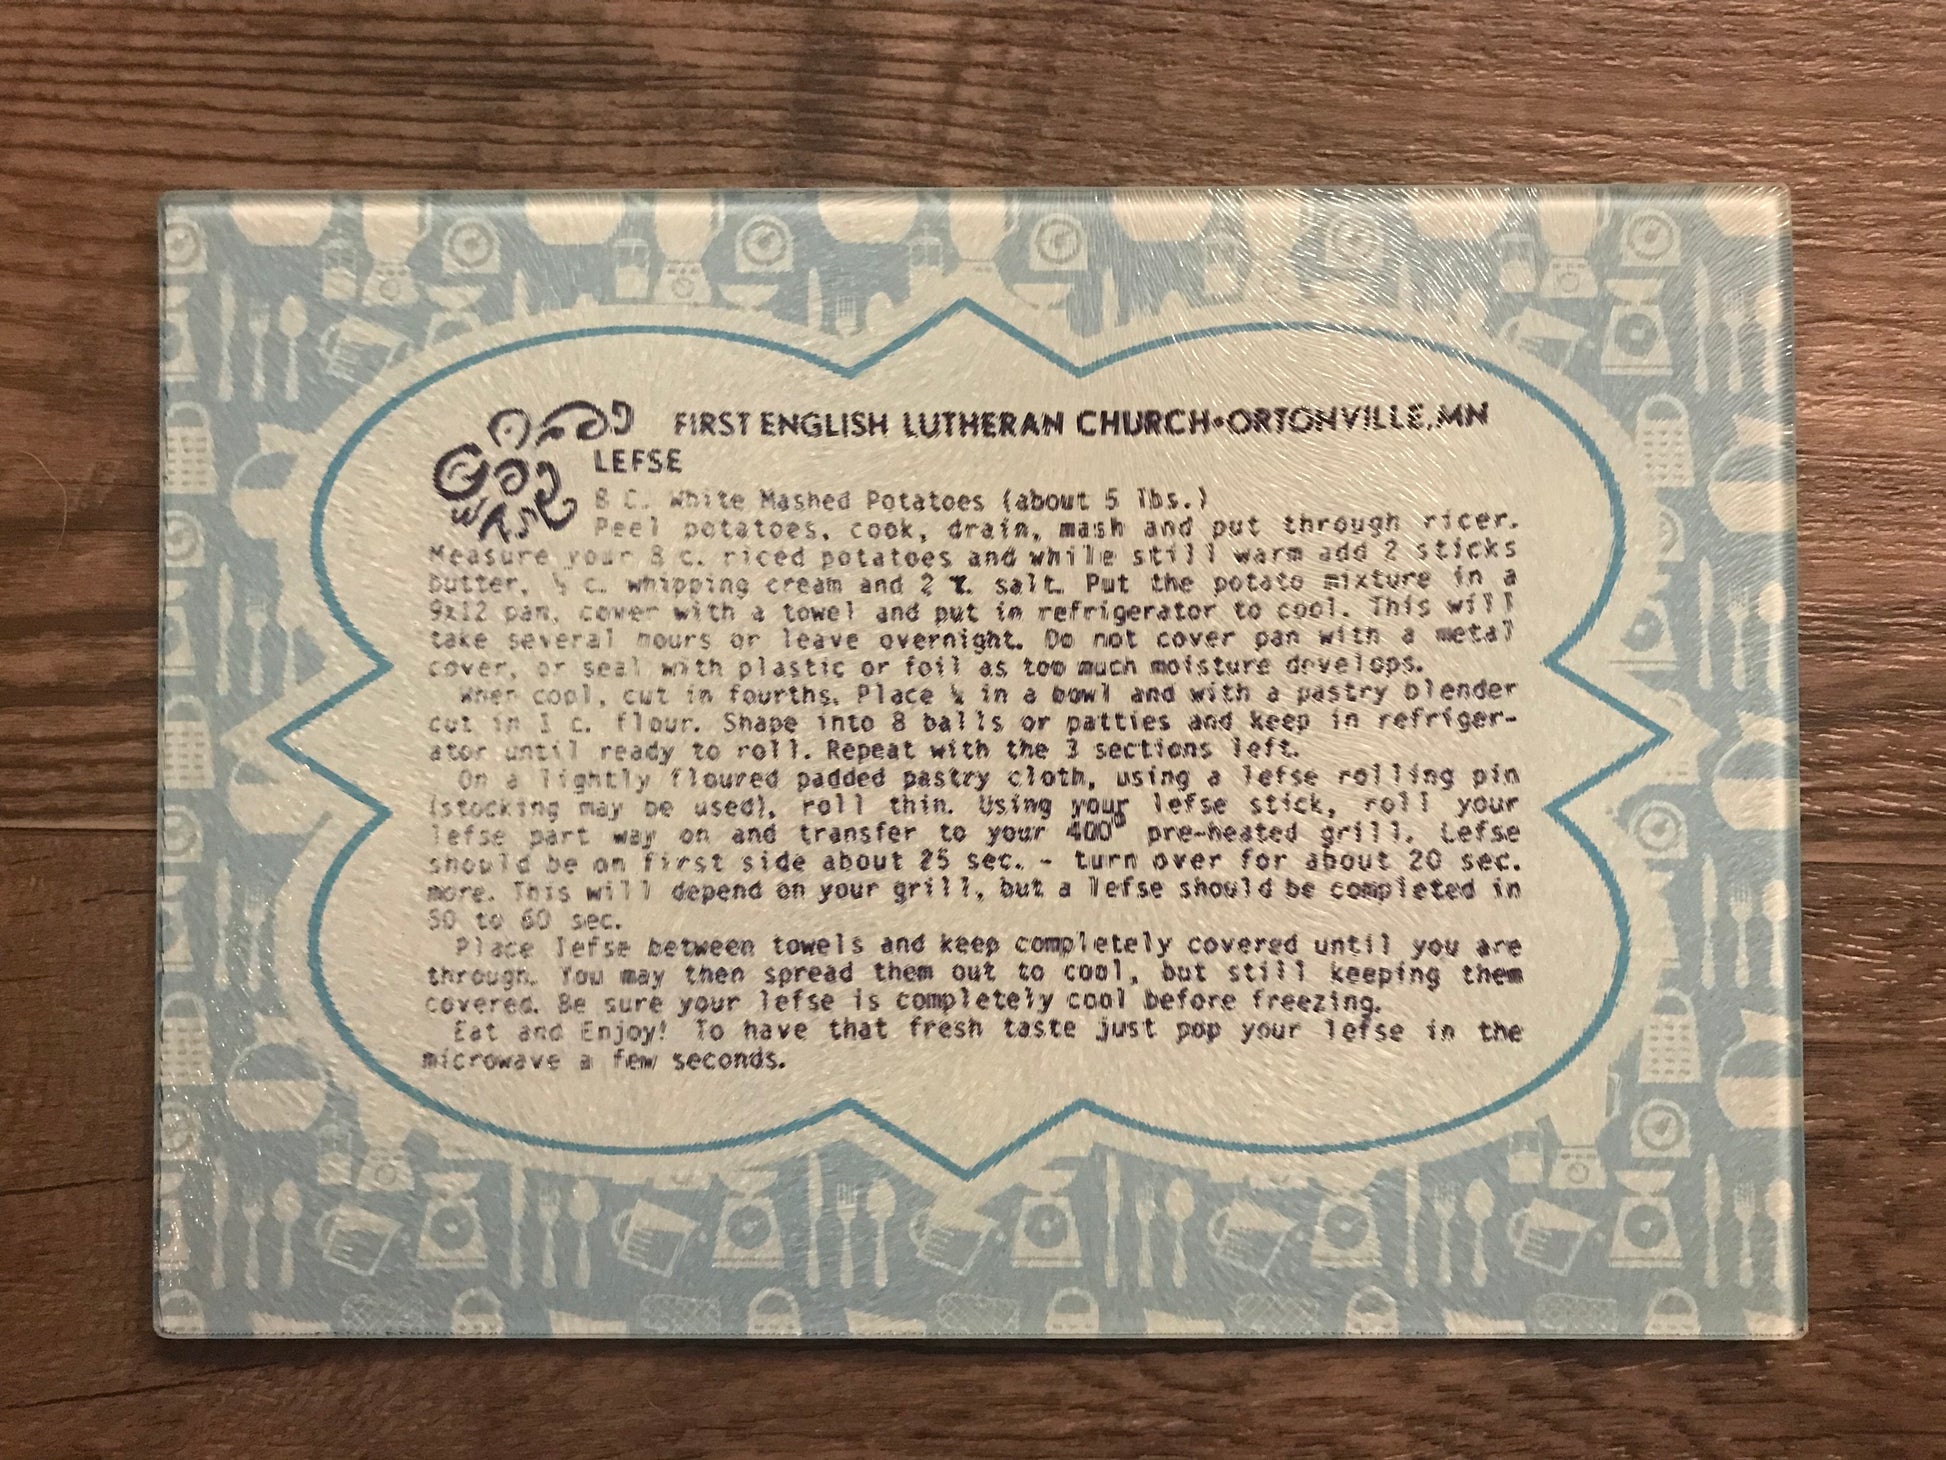 FIRST ENGLISH LUTHERAN CHURCH•ORTONVILLE, MN
LEFSE
8 C. White Mashed Potatoes (about 5 lbs.)
Peel potatoes, cook, drain, mash and put through ricer.
Measure your 8 c. riced potatoes and while still warm add 2 sticks
butter, c. whipping cream and 2 t. salt. Put the potato mixture in a
9x12 pan, cover with a towel and put in refrigerator to cool. This will
take several hours or leave overnight. Do not cover pan with a metal
cover, or seal with plastic or foil as too much moisture develops.
When cool, cut in fourths. Place ¼ in a bowl and with a pastry blender
cut in 1 c. flour. Shape into 8 balls or patties and keep in refriger-
ator until ready to roll. Repeat with the 3 sections left.
On a lightly floured padded pastry cloth, using a lefse rolling pin
(stocking may be used), roll thin. Using your lefse stick, roll your
lefse part way on and transfer to your 400° pre-heated grill. Lefse
should be on first side about 25 sec. - turn over for about 20 sec.
more. This will depend on your grill, but a lefse should be completed in
50 to 60 sec.
Place lefse between towels and keep completely covered until you are
through. You may then spread them out to cool, but still keeping them
covered. Be sure your lefse is completely cool before freezing.
Eat and Enjoy! To have that fresh taste just pop your lefse in the
microwave a few seconds.